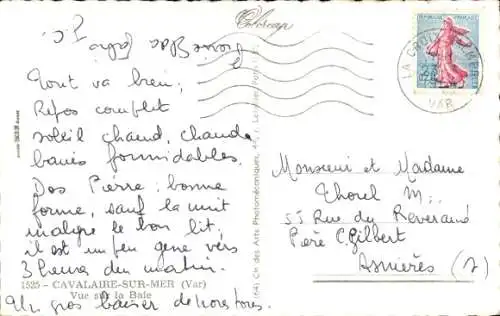 Colorcap
Tout va bien,
Repos complet
soleil chaud, chauds
bains formidables.
Dos Pierre : bonne
forme, sauf la nuit
malgré le bon lit,
il est un peu gêné vers
3 heures du matin.
1525 - CAVALAIRE-SUR-MER (Var)
Vue sur la Baie
Un gros baiser de nous tous.
Cie des Arts Photomécaniques
RÉPUBLIQUE FRANÇAISE
LA CROIX
VAR
Monsieur et Madame
Thorel M.
55 Rue du Reverend
Père C. Gilbert
Asnières